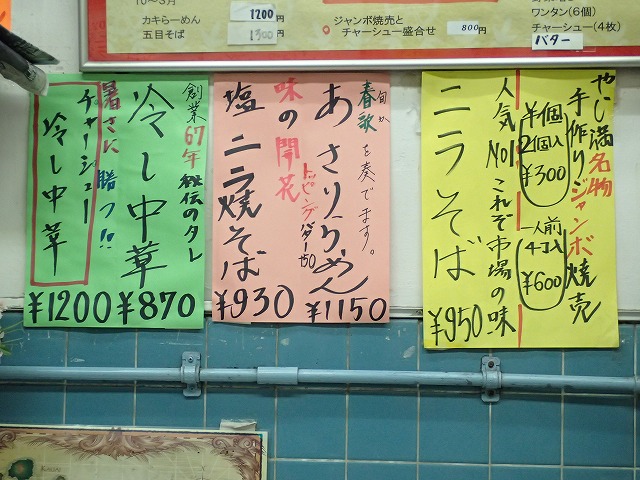 10〜3月
カキらーめん 1200円
五目そば 1300円
ジャンボ焼売と
チャーシュー盛合せ 800円
ワンタン(6個)
チャーシュー(4枚)
バター
やじ満名物
手作りジャンボ焼売
1個
2個入
¥300
一人前
4コ入
¥600
人気No1これぞ市場の味
ニラそば
¥950
春歌を奏でます。
旬が
あさりらーめん
¥1150
味の開花
トッピングバター150
塩ニラ焼そば
¥930
創業67年 秘伝のタレ
冷し中華
¥870
暑さに勝つ!!
チャーシュー
冷し中華
¥1200